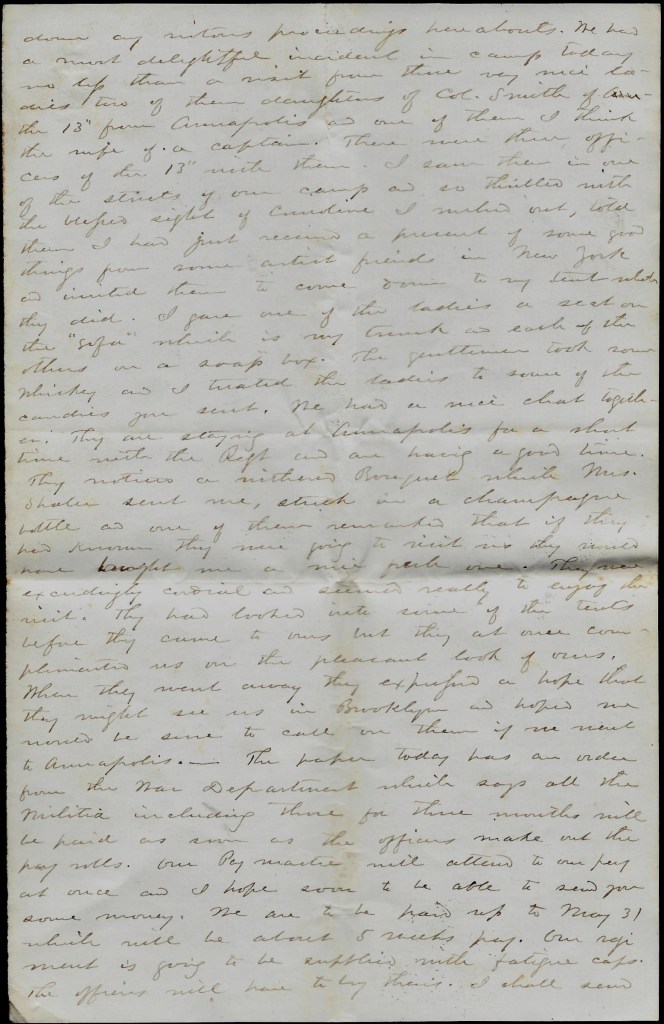 down any riotous proceedings hereabouts. We had
a most delightful incident in camp today
no less than a visit from three very nice la-
dies two of them daughters of Col. Smith of
the 13" from Annapolis and one of them I think
the wife of a captain. There were three offi-
cers of the 13" with them. I saw them in one
of the streets of our camp and so thrilled with
the blessed sight of crinoline I rushed out, told
them I had just received a present of some good
things from some artist friends in New York
and invited them to come down to my tent which
they did. I gave one of the ladies a seat on
the "sofa" which is my trunk and each of the
others on a soap box. The gentlemen took some
whiskey and I treated the ladies to some of the
candies you sent. We had a nice chat togeth-
er. They are staying at Annapolis for a short
time with the Regt and are having a good time.
They noticed a withered Bouquet which Mrs.
sent me, stuck in a champagne
bottle and one of them remarked that if they
had known they were going to visit us they would
have brought me a nice fresh one. They were
exceedingly cordial and seemed really to enjoy the
visit. They had looked into some of the tents
before they came to ours but they at once com-
plimented us on the pleasant look of ours.
When they went away they expressed a hope that
they might see us in Brooklyn and hoped we
would be sure to call on them if we went
to Annapolis. — The paper today has an order
from the War Department which says all the
Militia including those for three months will
be paid as soon as the officers make out the
pay rolls. Our Pay master will attend to our pay
at once and I hope soon to be able to send you
some money. We are to be paid up to May 31
which will be about 5 weeks pay. Our regi
ment is going to be supplied with fatigue caps.
The officers will have to buy theirs. I shall send